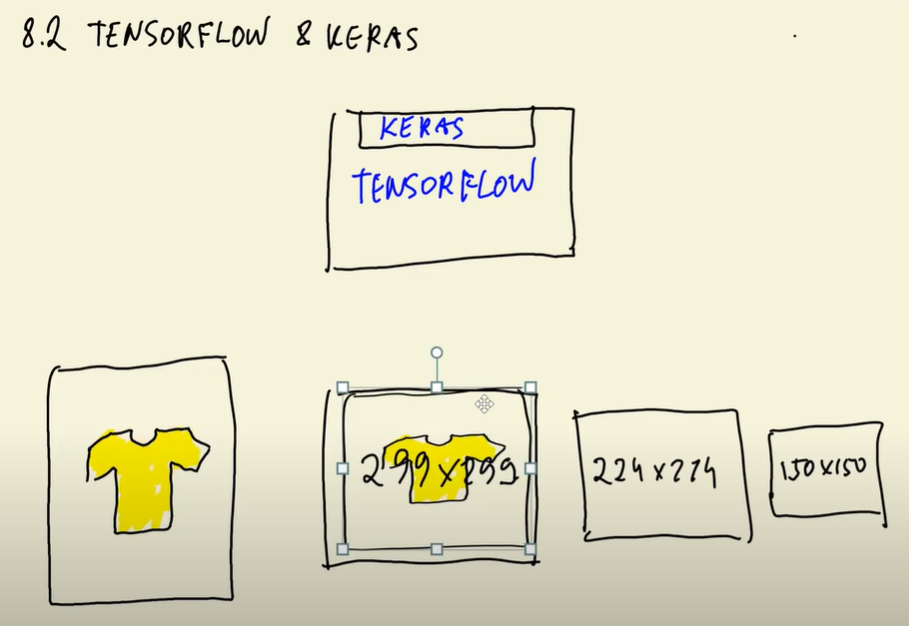 8.2 TENSORFLOW & KERAS
KERAS
TENSORFLOW
299x299
224x224
150x150